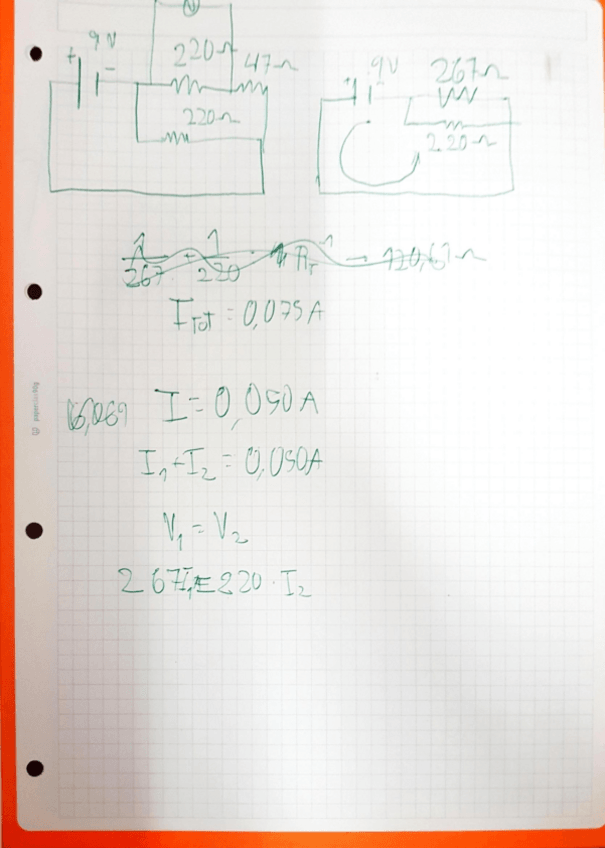 V
9V
+ -
220Ω 47Ω
220Ω
9V 267Ω
+ -
220Ω
1/267 + 1/220 = R_T^-1 → 120,61Ω
I_TOT = 0,075A
I = 0,050A
I_1 + I_2 = 0,050A
V_1 = V_2
267I_1 = 220 · I_2